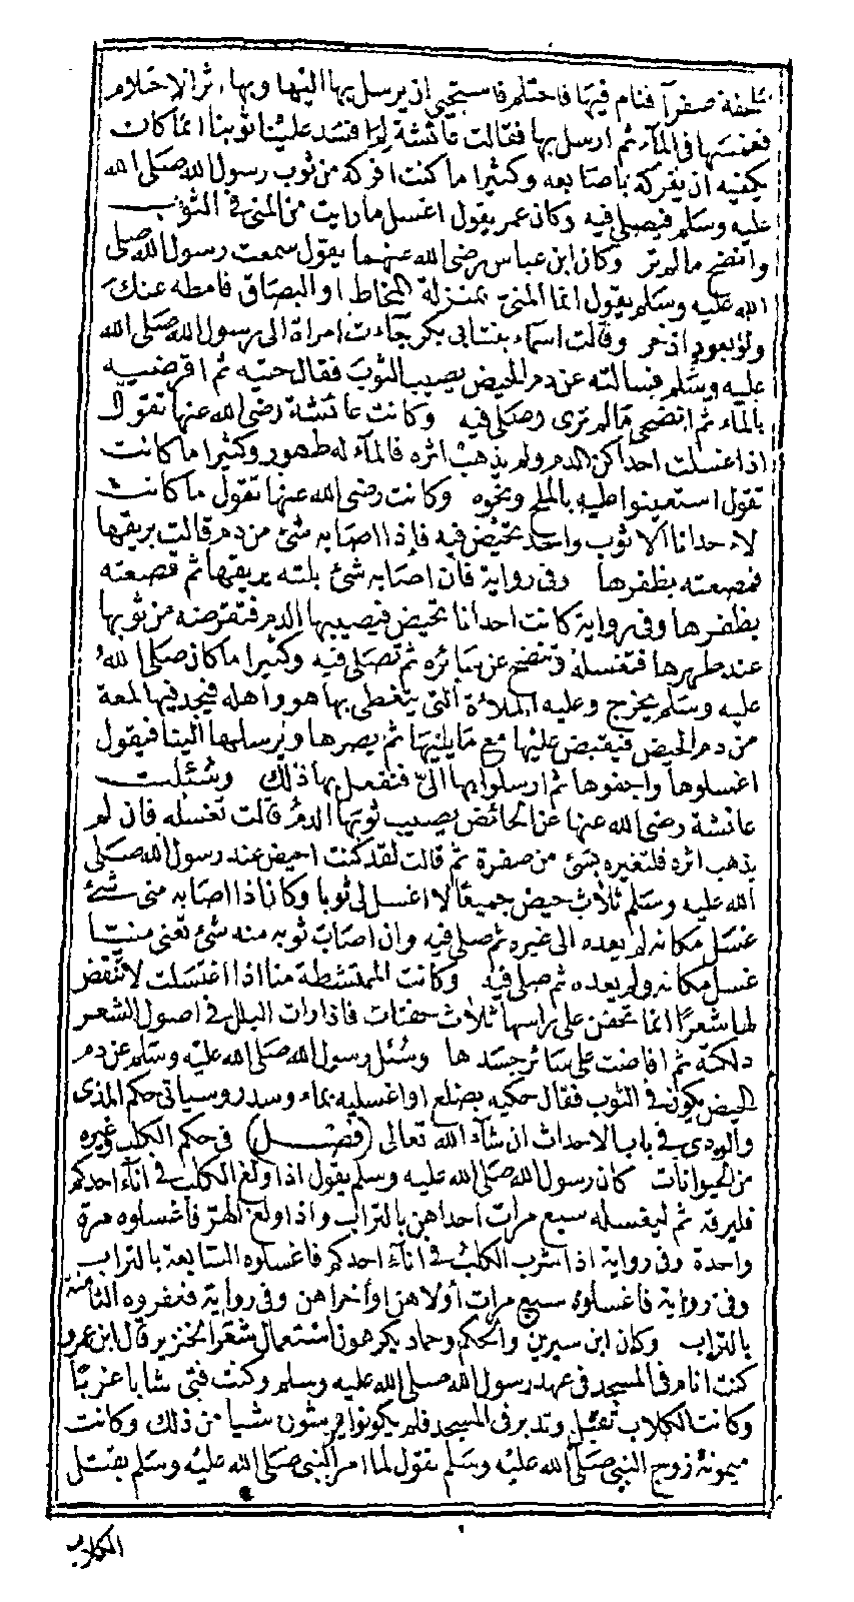 ملحفة صفرآ فنام فيها فاحتلم فاستحيى ان يرسل بها اليها وبها، اثر الاحتلام
فغمسها فى المآء ثم ارسل بها فقالت عائشة لم افسد علينا ثوبنا انما كان
يكفيه ان يفركه باصابعه وكثيرا ما كنت افركه من ثوب رسول الله صلى الله
عليه وسلم فيصلى فيه وكان عمر يقول اغسل ما رايت من المنى فى الثوب
وانضح ما لم تر وكان ابن عباس رضى الله عنهما يقول سمعت رسول الله صلى
الله عليه وسلم يقول انما المنى بمنزلة المخاط او البصاق فامطه عنك
ولو بعود اذخر وقالت اسماء بنت ابى بكر جآءت امراة الى رسول الله صلى الله
عليه وسلم فسالته عن دم الحيض يصيب الثوب فقال حتيه ثم اقرضيه
بالمآء ثم انضحى ما لم ترى وصلى فيه وكانت عائشة رضى الله عنها تقول
اذا غسلت احداكن الدم ولم يذهب اثره فالمآء له طهور وكثيرا ما كانت
تقول استعينوا عليه بالملح ونحوه وكانت رضى الله عنها تقول ما كانت
لاحدانا الا ثوب واحد تحيض فيه فإذا اصابه شئ من دم قالت بريقها
فمصعته بظفرها وفى رواية فان اصابه شئ بلته بريقها ثم قصعته
بظفرها وفى رواية كانت احدانا تحيض فيصيبها الدم فتقرضه من ثوبها
عند طهرها فتغسله وتنضح عن سائره ثم تصلى فيه وكثيرا ما كان صلى الله
عليه وسلم يخرج وعليه الملاءة التى يتغطى بها هو واهله فيجد فيها لمعة
من دم الحيض فيقبض عليها مع ما يليها ثم يصرها ويرسلها الينا فيقول
اغسلوها واجفوها ثم ارسلوا بها الىّ فتفعل بها ذلك وسُئلت
عائشة رضى الله عنها عن الحائض يصيب ثوبها الدم قالت تغسله فان لم
يذهب اثره فلتغيره بشئ من صفرة ثم قالت لقد كنت احيض عند رسول الله صلى
الله عليه وسلم ثلاث حيض جميعًا لا اغسل لى ثوبا وكان اذا اصابه منى شئ
غسل مكانه لم يعده الى غيره ثم صلى فيه وان اصاب ثوبه منه شئ تعنى منيّا
غسل مكانه ولم يعده ثم صلى فيه وكانت الممتشطة منا اذا اغتسلت لا تنقض
لها شعرًا انما تحفن على راسها ثلاث حفنات فاذا رات البلل فى اصول الشعر
دلكته ثم افاضت على سائر جسدها وسُئل رسول الله صلى الله عليه وسلم عن دم
الحيض يكون فى الثوب فقال حكيه بضلع او اغسليه بماء وسدر وسياتى حكم المذى
والودى فى باب الاحداث ان شآء الله تعالى (فصل) فى حكم الكلب وغيره
من الحيوانات كان رسول الله صلى الله عليه وسلم يقول اذا ولغ الكلب فى انآء احدكم
فليرقه ثم ليغسله سبع مرات احداهن بالتراب واذا ولغ الهرّ فاغسلوه مرة
واحدة وفى رواية اذا شرب الكلب فى انآء احدكم فاغسلوه السابعة بالتراب
وفى رواية فاغسلوه سبع مرات أولاهن او أخراهن وفى رواية فعفروه الثامنة
بالتراب وكان ابن سيرين والحكم وحماد يكرهون استعمال شعر الخنزير قال ابن عمر
كنت انام فى المسجد فى عهد رسول الله صلى الله عليه وسلم وكنت فتى شابا عزبًا
وكانت الكلاب تقبل وتدبر فى المسجد فلم يكونوا يرشون شيا من ذلك وكانت
ميمونة زوج النبى صلى الله عليه وسلم تقول لما امر النبى صلى الله عليه وسلم بقتل
الكلاب